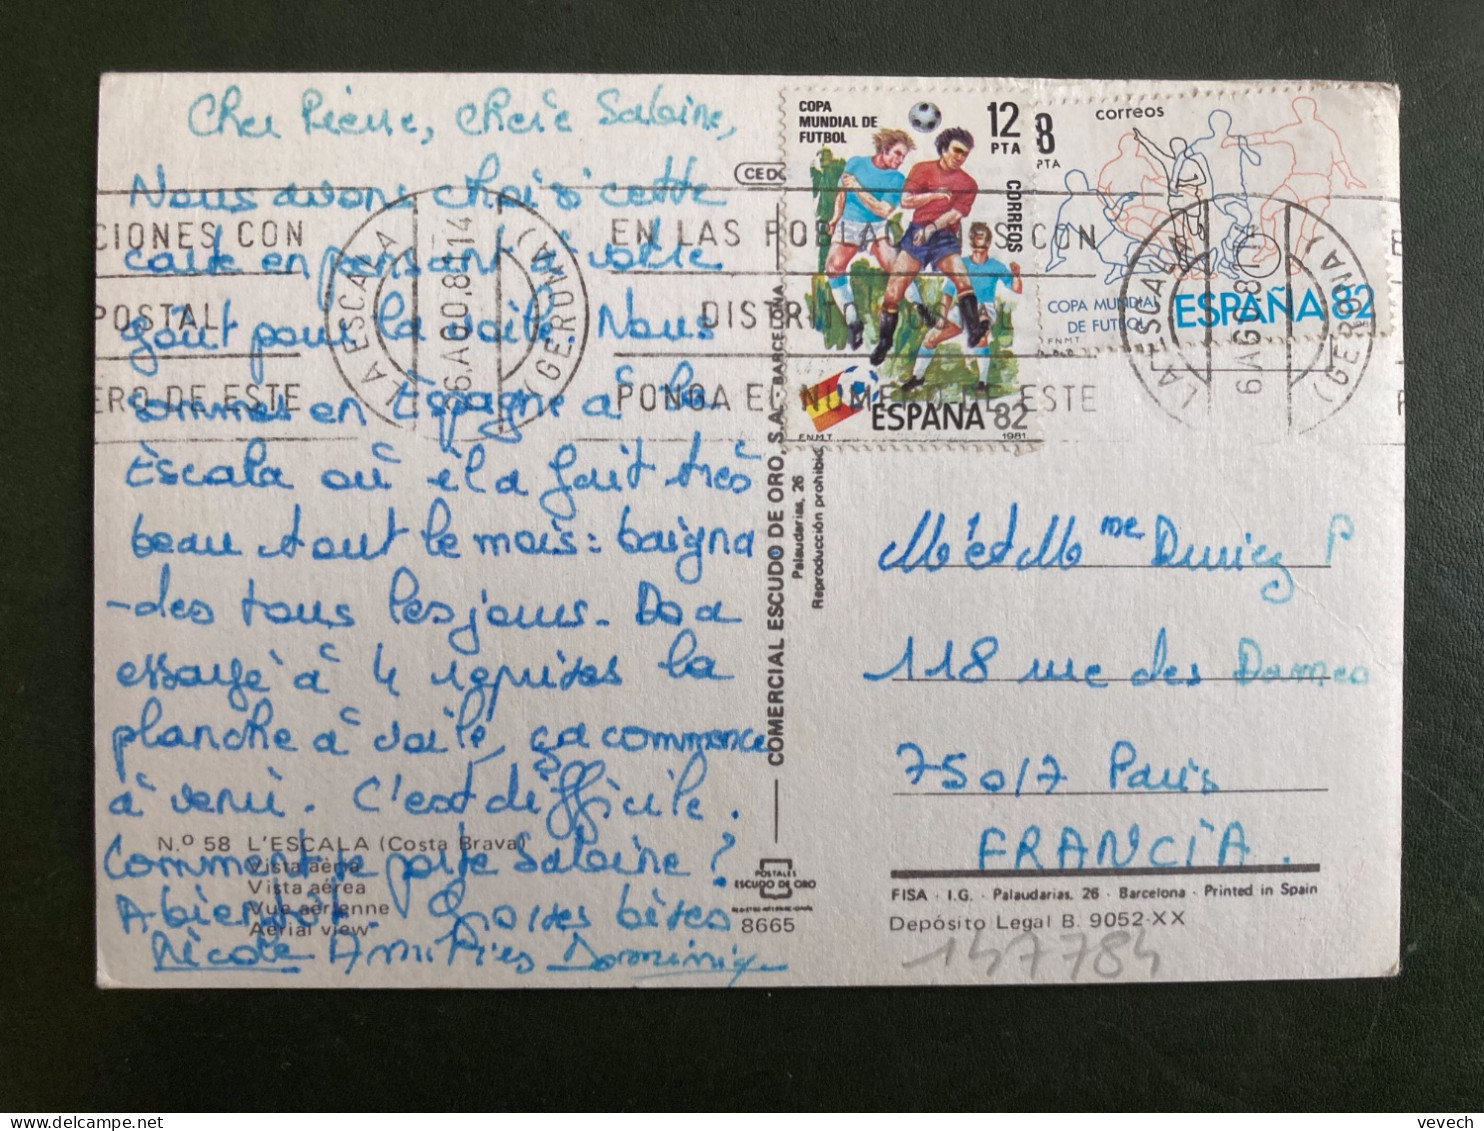 Cher Pierre, chère Sabine,
Nous avons choisi cette
carte en pensant à votre
goût pour la voile. Nous
sommes en Espagne à la
Escala où il a fait très
beau tout le mois : baigna
-des tous les jours. Do a
essayé à 4 reprises la
planche à voile, ça commence
à venir. C'est difficile.
Comment se porte Sabine ?
A bientôt. Grosses bises
Nicole Amitiés Dominique
N.º 58 L'ESCALA (Costa Brava)
Vista aèria
Vista aérea
Vue aérienne
Aerial view
CIONES CON
POSTAL
ERO DE ESTE
LA ESCALA
(GERONA)
EN LAS POBLACIONES CON
DISTRITO POSTAL
PONGA EL NUMERO DE ESTE
LA ESCALA
(GERONA)
COPA
MUNDIAL DE
FUTBOL
12
PTA
CORREOS
ESPAÑA 82
F.N.M.T.
1981
8
PTA
correos
COPA MUNDIAL
DE FUTBOL
ESPAÑA 82
F N M T
COMERCIAL ESCUDO DE ORO, S.A. - BARCELONA
Palaudarias, 26
Reproducción prohibid
POSTALES
ESCUDO DE ORO
8665
M. et Mme P
118 rue des Dames
75017 Paris
FRANCIA.
FISA - I.G. - Palaudarias, 26 - Barcelona - Printed in Spain
Depósito Legal B. 9052-XX
147784
vevech